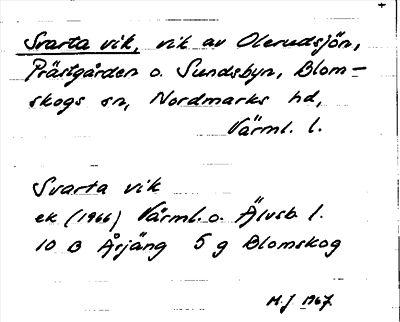 Svarta vik, vik av Olerudsjön,
Prästgården o. Sundsbyn, Blom-
skogs sn, Nordmarks hd,
Värml. l.
Svarta vik
ek (1966) Värml. o. Älvsb l.
10 B Årjäng 5 g Blomskog
M.J 1967